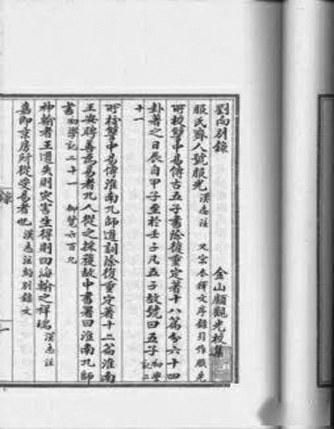 劉向別錄
金山顧觀光校集
服氏齊人號服光漢志注 又宋本釋文序錄引作服先
所校讐中易傳古五子書除復重定著十八篇分六十四
卦著之日辰自甲子至於壬子凡五子故號曰五子初學記二
十一
所校讐中易傳淮南九師道訓除復重定著十二篇淮南
王安聘善為易者九人從之採獲故中書署曰淮南九師
書初學記二十一 御覽六百九
神輸者王道失則災害生得則四海輸之祥瑞漢志注
嘉即京房所從受易者也漢志注師別錄文
錄
一